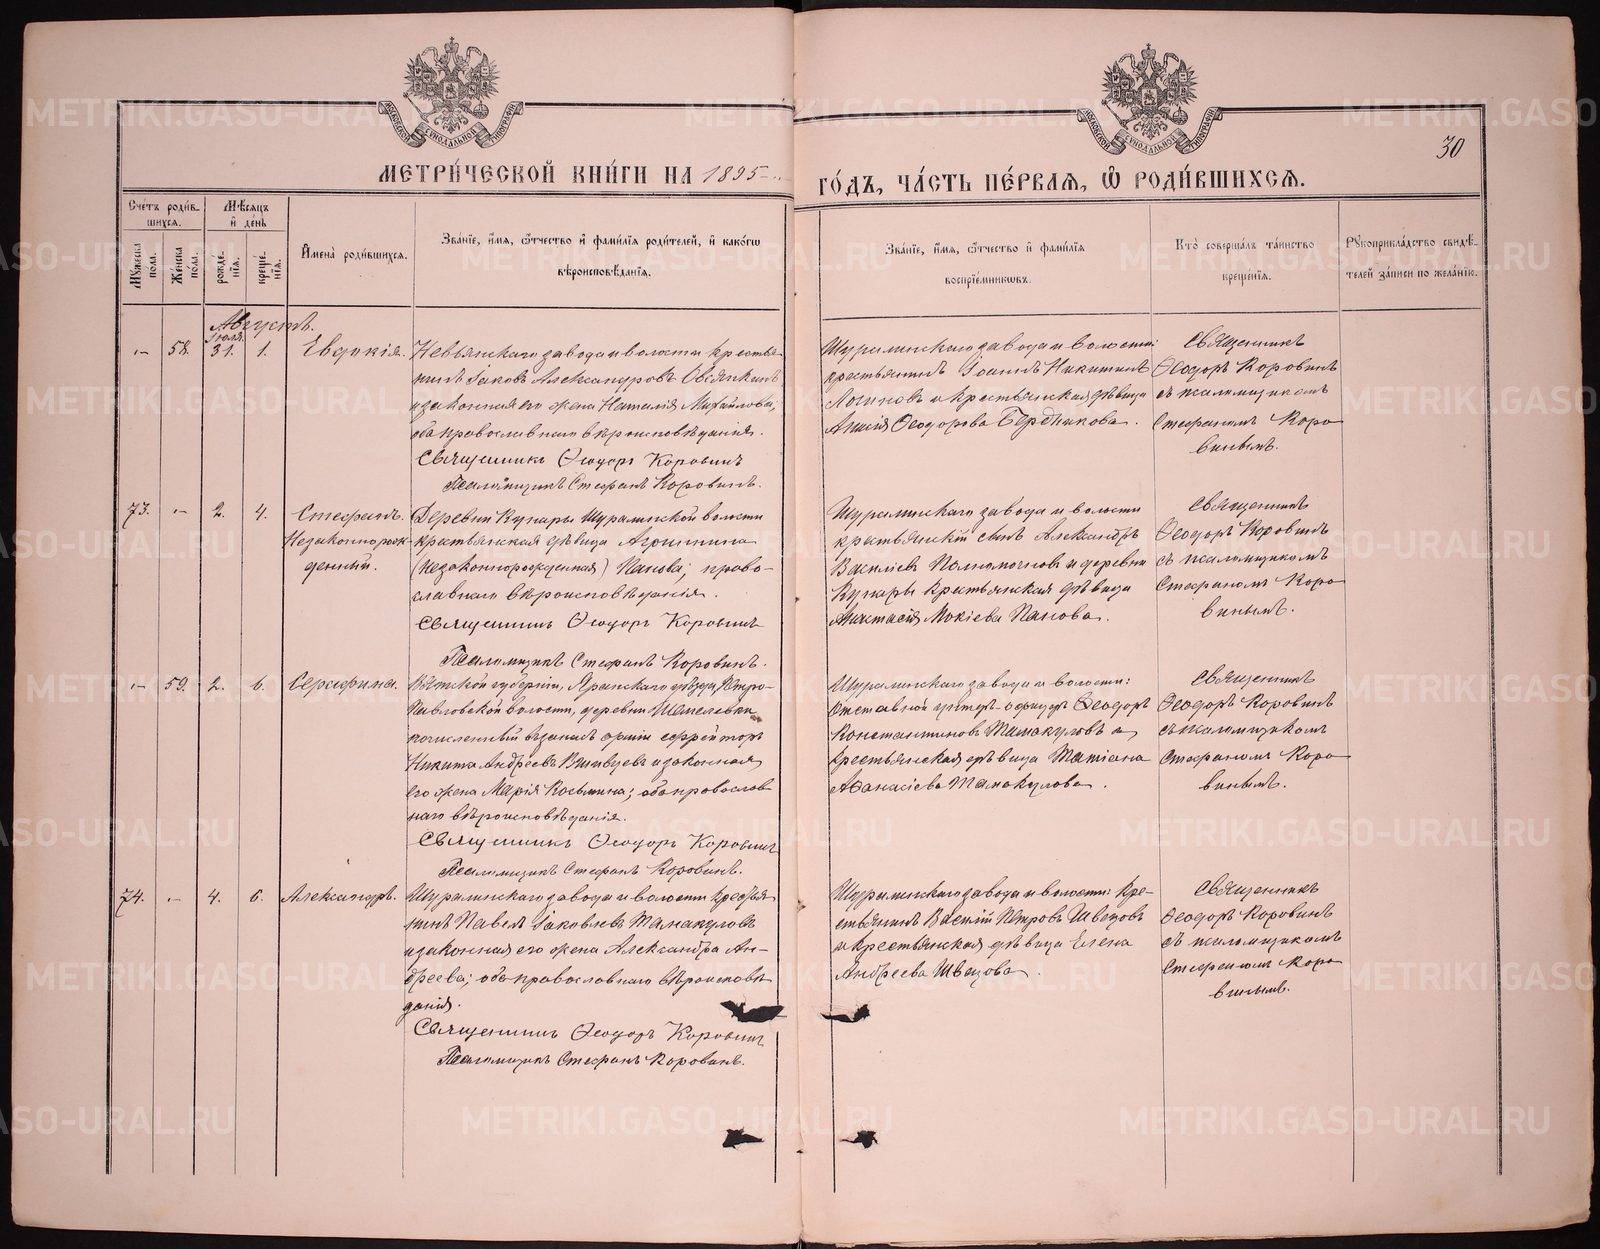 МЕТРИ́ЧЕСКОЙ КНИ́ГИ НА 1895
ГО́ДЪ, ЧА́СТЬ ПЕ́РВАЯ, Ѽ РОДИ́ВШИХСЯ.
30
Сче́тъ роди́в-
шихся.
Мѣ́сяцъ
и҆ де́нь
Му́жеска по́ла.
Же́нска по́ла.
рожде́-
нїя.
креще́-
нїя.
И҆мена̀ роди́вшихся.
Зва́нїе, и҆́мя, ѻ҆́тчество и҆ фами́лїя роди́телей, и҆ како́гѡ
вѣроисповѣ́данїя.
Зва́нїе, и҆́мя, ѻ҆́тчество и҆ фами́лїя
воспрїе́мникѡвъ.
Кто̀ соверша́лъ та́инство
креще́нїя.
Рꙋкоприкла́дство свидѣ́-
телей за́писи по жела́нїю.
Августъ.
58. Іюля 31. 1. Евдокія.
Невьянскаго завода и волости крестья-
нинъ Іаковъ Александровъ Овсянкинъ
и законная его жена Наталія Михайлова;
оба православнаго вѣроисповѣданія.
Священникъ Ѳеодоръ Коровинъ
Псаломщикъ Стефанъ Коровинъ.
Шуралинскаго завода и волости:
крестьянинъ Іоаннъ Никитинъ
Логиновъ и крестьянская дѣвица
Ѳеодорова Бердникова.
Священникъ
Ѳеодоръ Коровинъ
съ псаломщикомъ
Стефаномъ Коро
винымъ.
73. 2. 4. Стефанъ.
Незаконнорож-
денный.
Деревни Кунары Шуралинской волости
крестьянская дѣвица Агрипина
(незаконнорожденная) Панова; право-
славнаго вѣроисповѣданія.
Священникъ Ѳеодоръ Коровинъ
Псаломщикъ Стефанъ Коровинъ.
Шуралинскаго завода и волости
крестьянскій сынъ Александръ
Василіевъ Полномочновъ и деревни
Кунары крестьянская дѣвица
Анастасія Мокіева Панова.
Священникъ
Ѳеодоръ Коровинъ
съ псаломщикомъ
Стефаномъ Коро
винымъ.
59. 2. 6. Серафима.
Вятской губерніи, Яранскаго уѣзда, Петро-
Павловской волости, деревни
Никита Андреевъ и законная
его жена Марія Козьмина; оба православ
наго вѣроисповѣданія.
Священникъ Ѳеодоръ Коровинъ
Псаломщикъ Стефанъ Коровинъ.
Шуралинскаго завода и волости:
Отставной унтеръ-офицеръ Ѳеодоръ
Константиновъ Тамакуловъ и
крестьянская дѣвица Татіана
Аѳанасіева Тамакулова.
Священникъ
Ѳеодоръ Коровинъ
съ псаломщикомъ
Стефаномъ Коро
винымъ.
74. 4. 6. Александръ.
Шуралинскаго завода и волости крестья
нинъ Павелъ Іаковлевъ Тамакуловъ
и законная его жена Александра Ан-
дреева; оба православнаго вѣроисповѣ
данія.
Священникъ Ѳеодоръ Коровинъ
Псаломщикъ Стефанъ Коровинъ.
Шуралинскаго завода и волости: кре-
стьянинъ Василій Петровъ Швецовъ
и крестьянская дѣвица Елена
Андреева Швецова.
Священникъ
Ѳеодоръ Коровинъ
съ псаломщикомъ
Стефаномъ Коро
винымъ.
METRIKI.GASO-URAL.RU